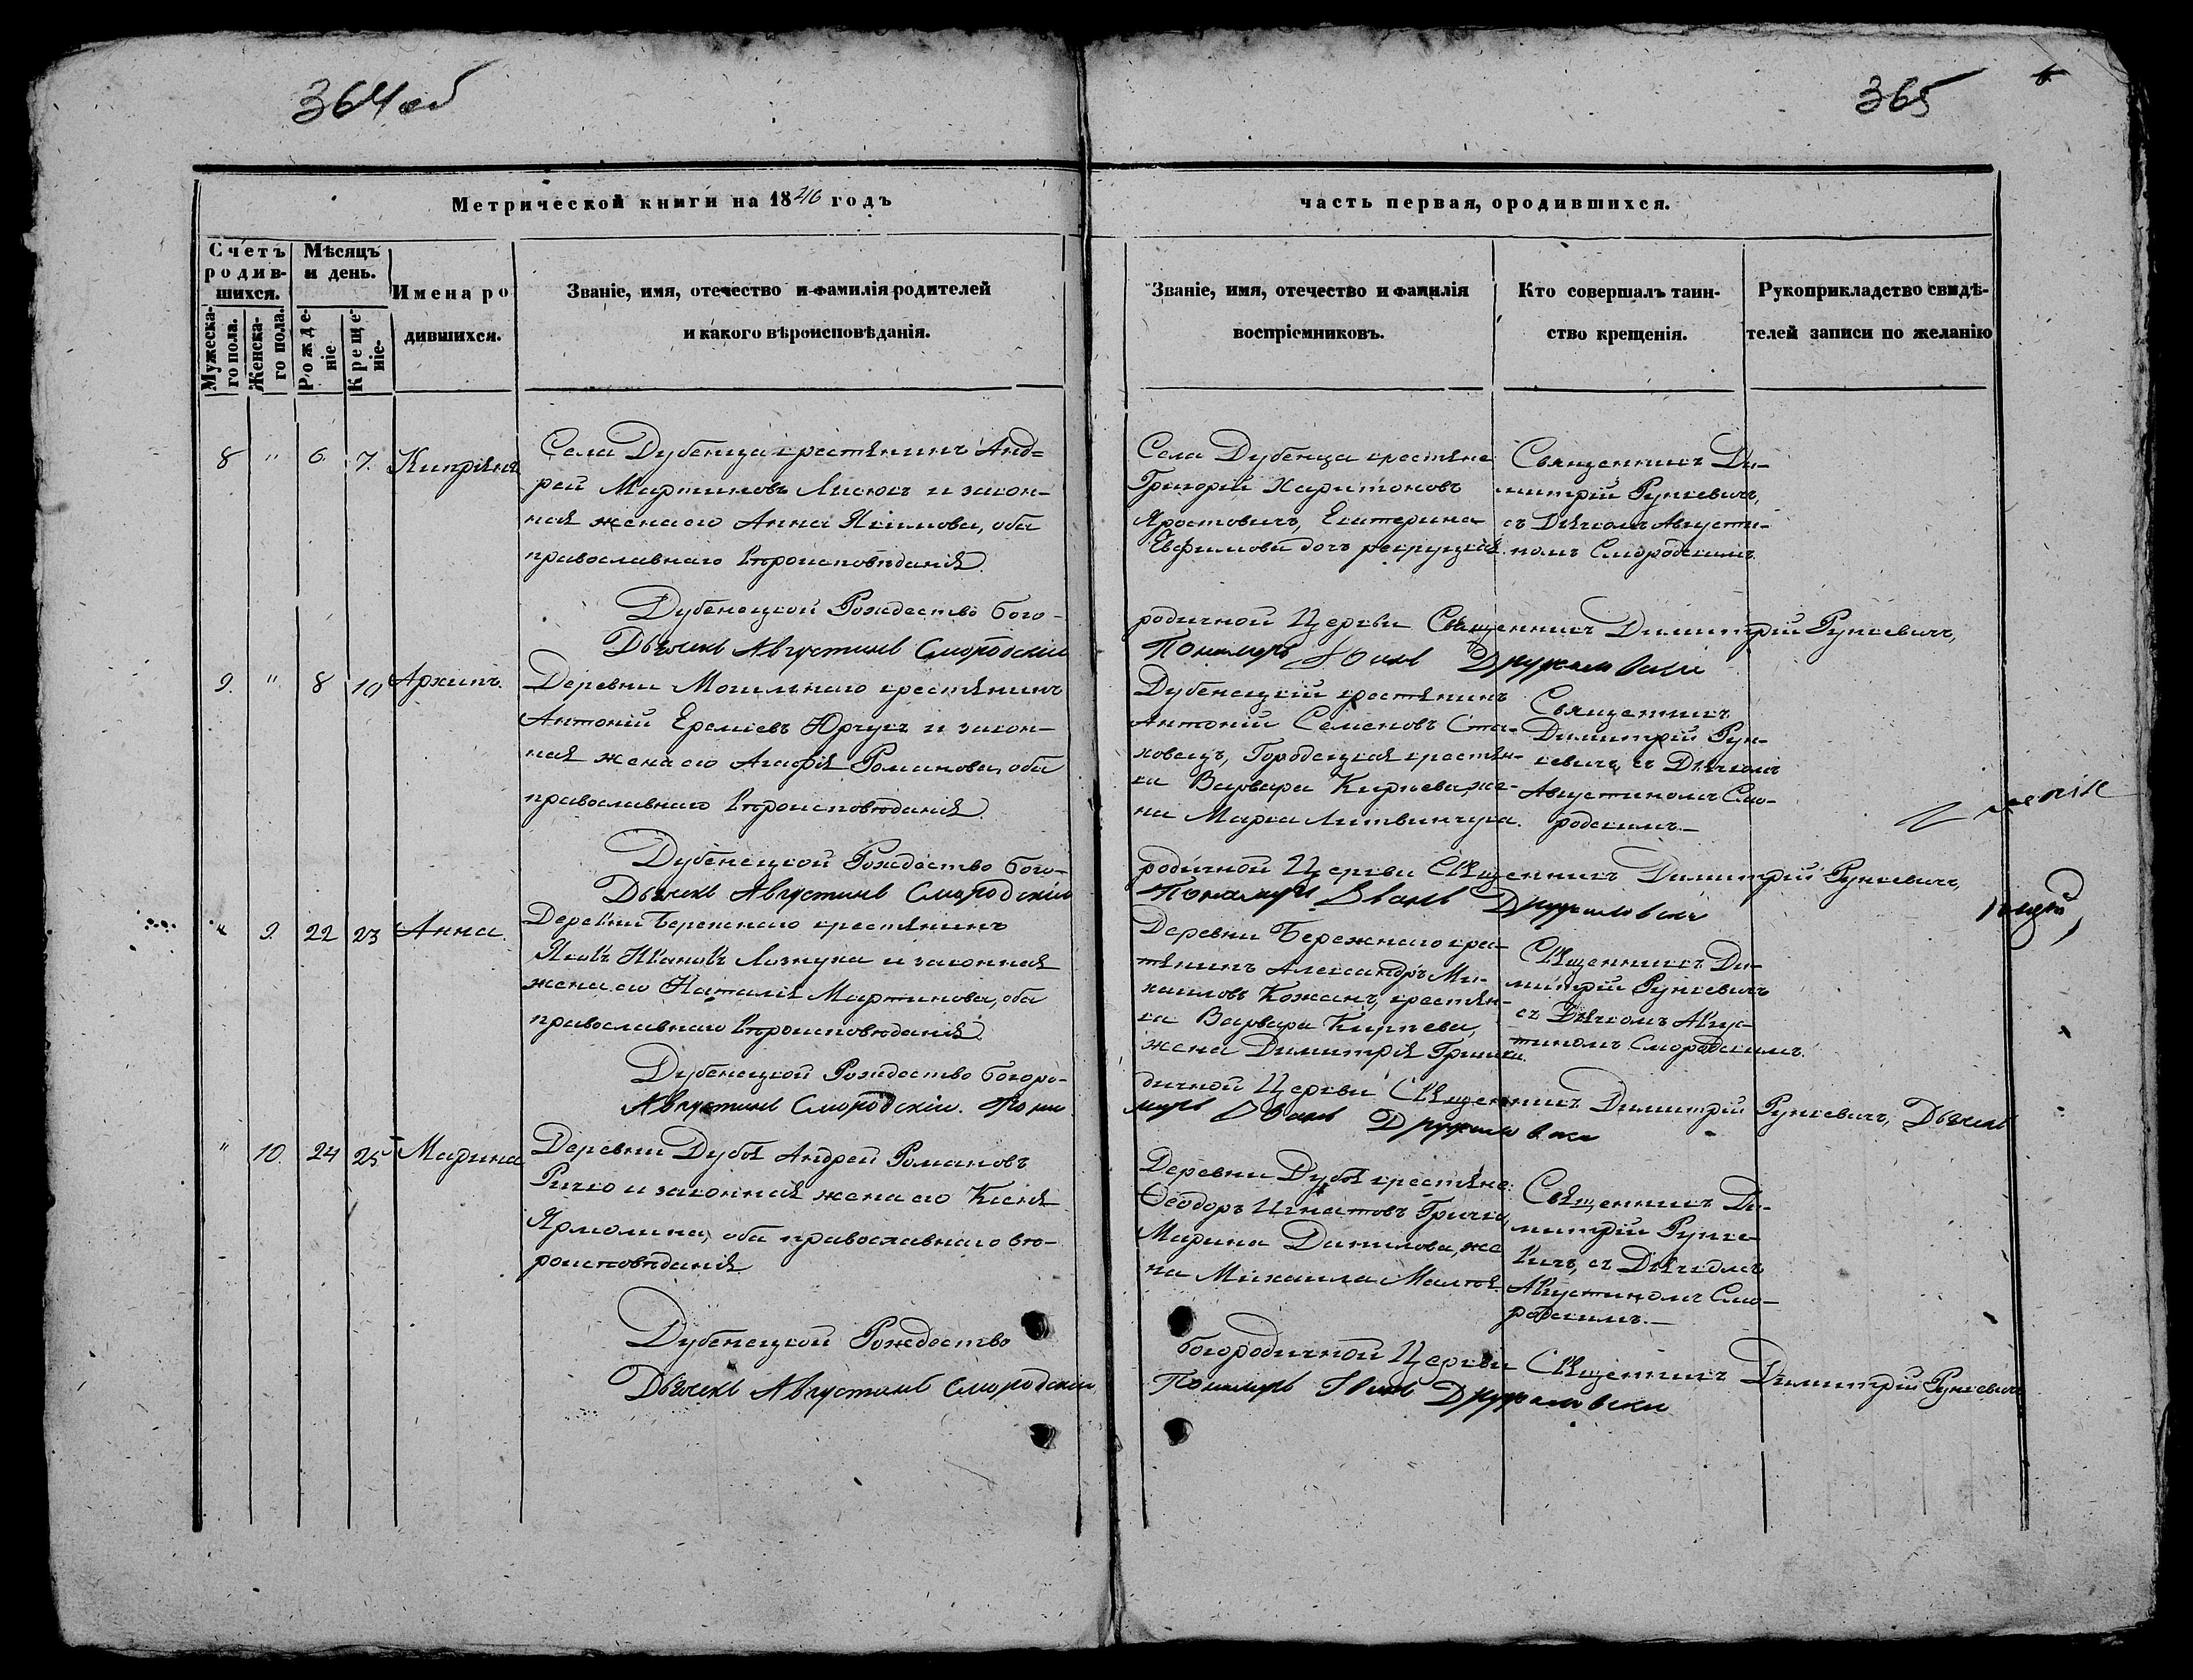 364об
365
Метрической книги на 1846 годъ
часть первая, ородившихся.
Счетъ родив-шихся.
Мужеска-го пола.
Женска-го пола.
Мѣсяцъ и день.
Рожде-ніе
Креще-ніе.
Имена ро
дившихся.
Званіе, имя, отечество и фамилія родителей
и какого вѣроисповѣданія.
Званіе, имя, отечество и фамилія
воспріемниковъ.
Кто совершалъ таин-
ство крещенія.
Рукоприкладство свидѣ-
телей записи по желанію
8 " 6 7. Кипріянъ
Села Дубенца крестянинъ Анд=
рей Мартиновъ Лисюкъ и закон-
ная жена его Анна Якимова, оба
православнаго вѣроисповѣданія.
Села Дубенца крестяне
Григорій Харитоновъ
Яростовичъ, Екатерина
Евфимова дочъ рекруцкая.
Священникъ Ди-
митрій Рункевичъ,
съ Дячкомъ Августи-
номъ Смородскимъ.
Дубенецкой Рождество Бого-
родичной Церкви Священникъ Димитрій Рункевичъ,
Дьячекъ Августинъ Смородскій
Пономарь Іванъ Дружиловскій
9. " 8 10 Архипъ.
Деревни Могильнаго крестянинъ
Антоній Ереміевъ Юрчукъ и закон-
ная жена его Агафія Романова, оба
православнаго вѣроисповѣданія.
Дубенецкій крестянинъ
Антоній Семеновъ Ста-
ховецъ, Городецкая крестян-
ка Варвара Кирпева, же-
на Марка Литвинчука.
Священникъ
Димитрій Рун-
кевичъ, съ Дячкомъ
Августиномъ Смо-
родскимъ.—
Дубенецкой Рождество Бого-
родичной Церкви Священникъ Димитрій Рункевичъ,
Дьячекъ Августинъ Смородскій
Пономарь Іванъ Дружиловскій
" 9. 22 23 Анна.
Деревни Бережнаго крестянинъ
Яковъ Ивановъ Лознуха и законная
жена его Наталія Мартинова, оба
православнаго вѣроисповѣданія.
Деревни Бережнаго крес-
тянинъ Александръ Ми-
хаиловъ Кожанъ, крестян-
ка Варвара Кирпева,
жена Димитрія Гришки.
Священникъ Ди-
митрій Рункевичъ
съ Дячкомъ Авгус-
тиномъ Смородскимъ.
Дубенецкой Рождество Богоро-
дичной Церкви Священникъ Димитрій Рункевичъ, Дьячекъ
Августинъ Смородскій. Поно
марь Іванъ Дружиловскій
" 10. 24 25 Марина
Деревни Дубоя Андрей Романовъ
Ричко и законная жена его Ксенія
Ярмолина, оба православнаго вѣ-
роисповѣданія.
Деревни Дубоя крестяне:
Ѳеодоръ Игнатовъ Гричко,
Марина Данилова, же
на Михаила
Священникъ Ди-
митрій Рунке
вичъ, съ Дячкомъ
Августиномъ Смо-
родскимъ.—
Дубенецкой Рождество
богородичной Церкви Священникъ Димитрій Рункевичъ
Дьячекъ Августинъ Смородскій
Пономарь Іванъ Дружиловскій